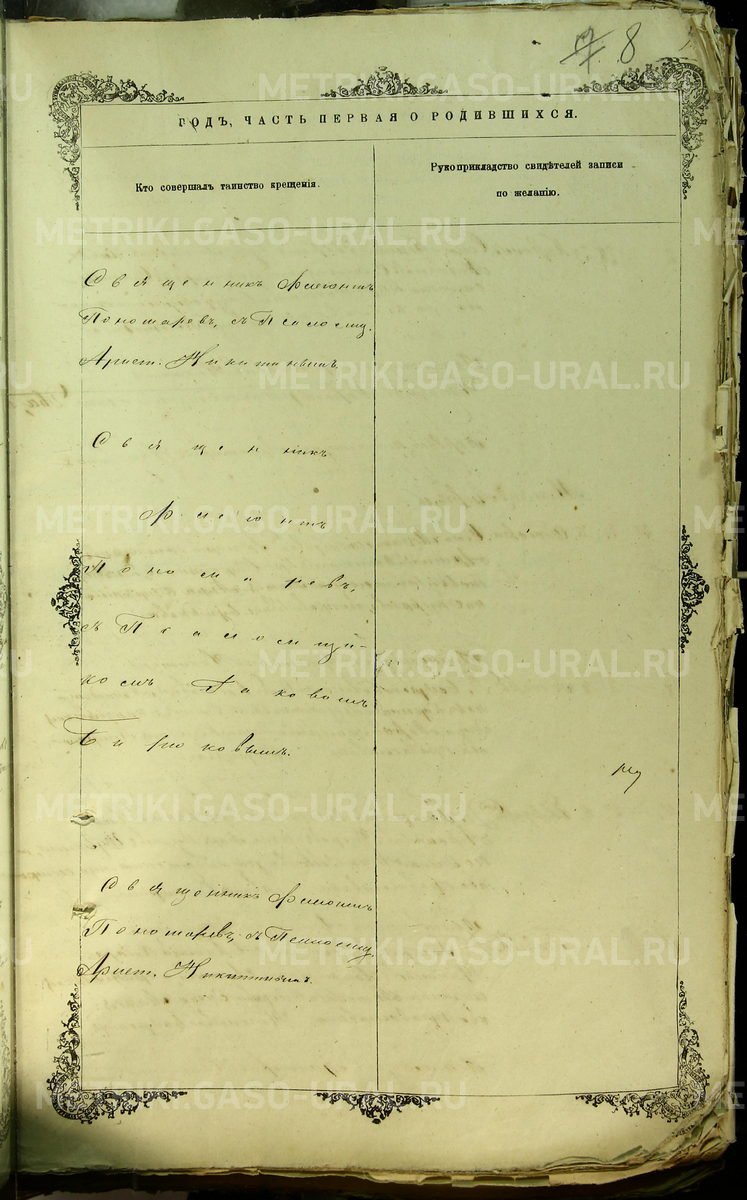 8
ГОДЪ, ЧАСТЬ ПЕРВАЯ О РОДИВШИХСЯ.
Кто совершалъ таинство крещенія.
Рукоприкладство свидѣтелей записи
по желанію.
Священникъ
Пономаревъ, съ Псаломщ.
Арист. Никитинымъ.
Священникъ
Пономаревъ,
съ Псаломщи-
комъ Іаковомъ
Бирюковымъ.
Священникъ
Пономаревъ, съ Псаломщ.
Арист. Никитинымъ.
METRIKI.GASO-URAL.RU